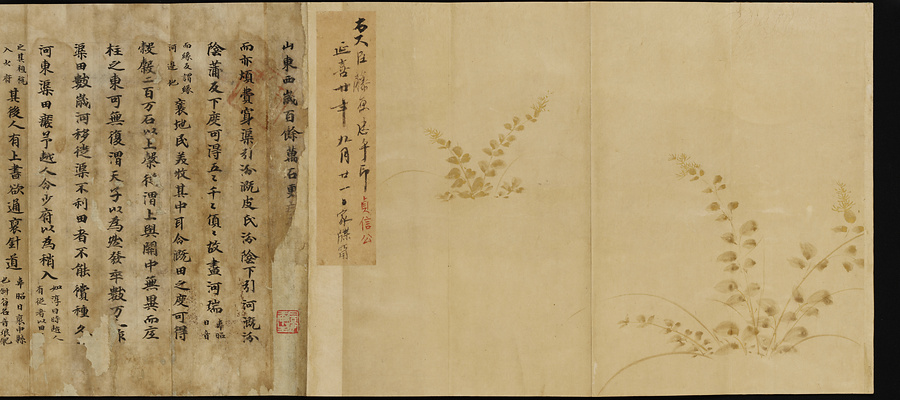 右大臣藤原忠平印 貞信公
延喜廿年九月廿一日家牒
山東西歲百餘萬石更
而亦煩費穿渠引汾漑皮氏汾陰下引河漑汾
陰蒲反下度可得五々千々頃々故盡河壖 韋昭
曰音
而緣反謂緣
河邊地
地民茭牧其中耳今漑田之度可得
穀二百万石以上穀從渭上與關中無異而底
柱之東可無復渭天子以為然發卒數万人作
渠田數歲河移徙渠不利田者不能償種久々
河東渠田廢予越人令少府以為稍入 如淳曰時越人
有徙者以田
之其租稅
入少府
其後人有上書欲通褒斜道 韋昭曰褒中縣
也斜谷名音